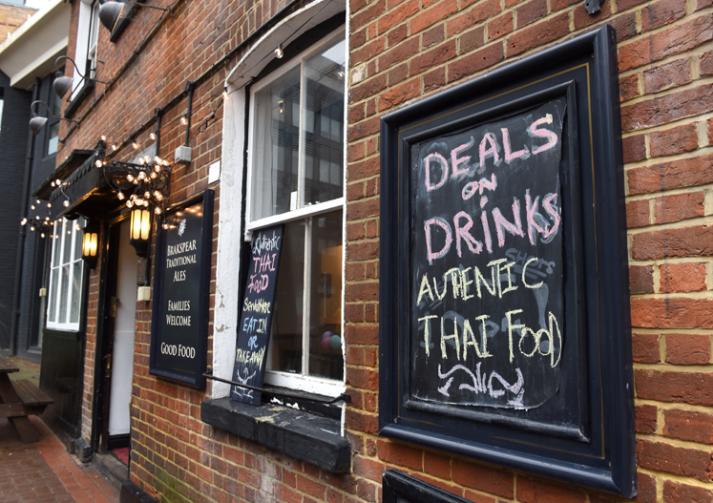 BRAKSPEAR
TRADITIONAL
ALES
FAMILIES
WELCOME
GOOD FOOD
Authentic
THAI
FOOD
Served Here
EAT IN
OR
TAKEAWAY
DEALS
ON
DRINKS
AUTHENTIC
THAI FooD